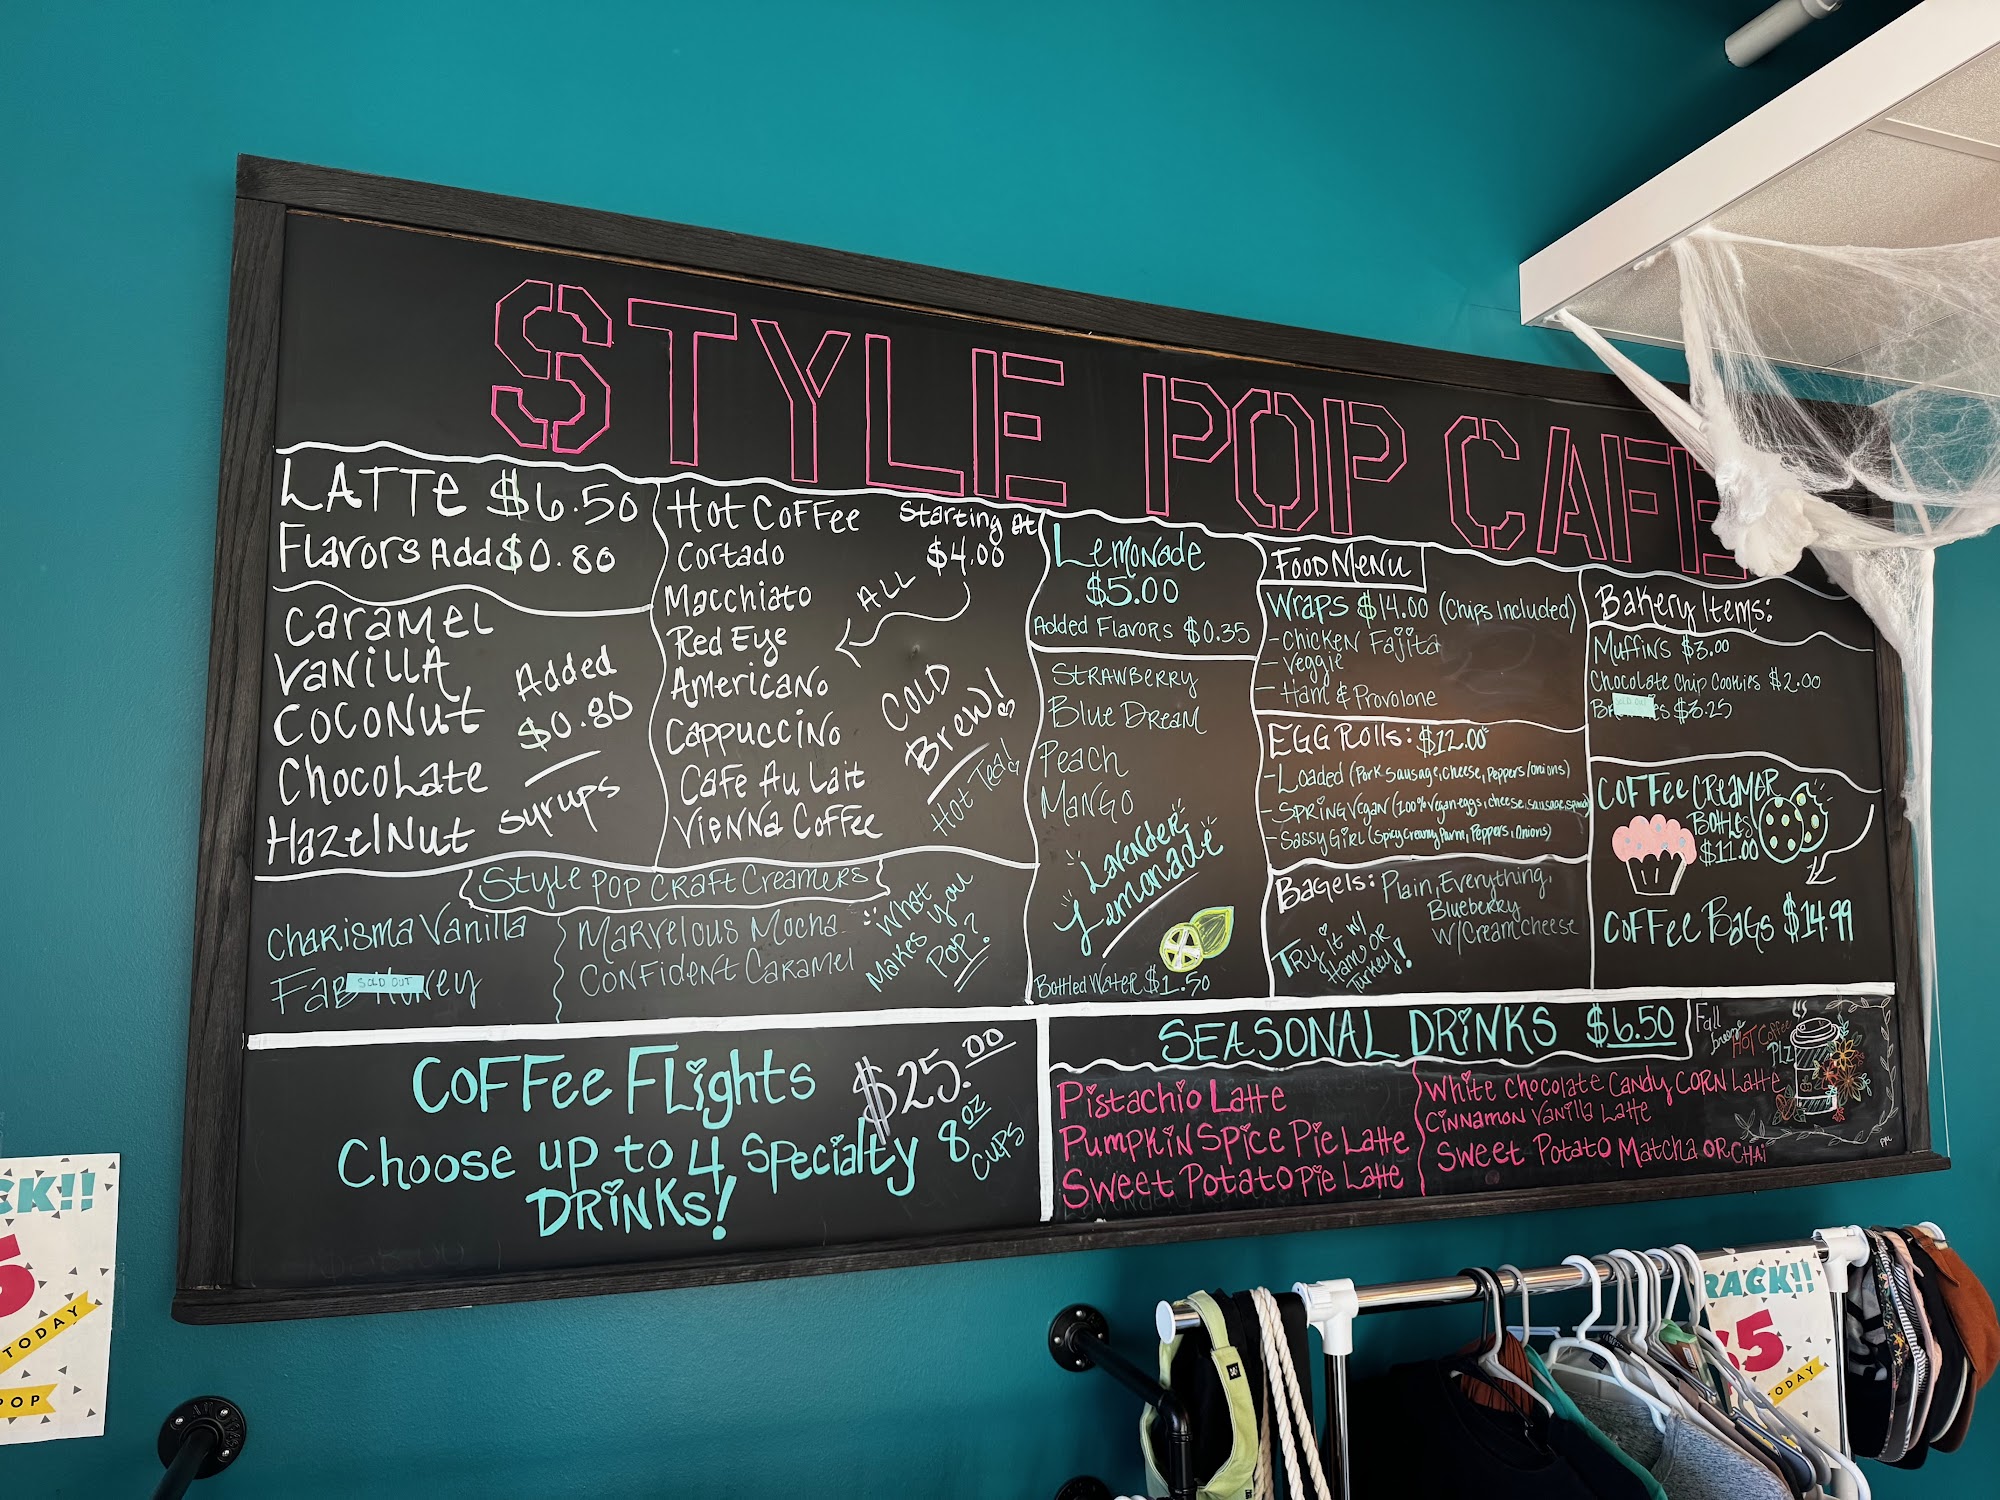 STYLE POP CAFE
LATTE $6.50
Flavors Add $0.80
Caramel
Vanilla
Coconut
Chocolate
Hazelnut
Added
$0.80
syrups
Hot Coffee
Starting at
$4.00
ALL
Cortado
Macchiato
Red Eye
Americano
Cappuccino
Cafe Au Lait
Vienna Coffee
COLD
Brew!
Hot Tea!
Style Pop Craft Creamers
Charisma Vanilla
Fab Honey
SOLD OUT
Marvelous Mocha
Confident Caramel
What
Makes You
Pop?
Lemonade
$5.00
Added Flavors $0.35
Strawberry
Blue Dream
Peach
Mango
Lavender
Lemonade
Bottled Water $1.50
Food Menu
Wraps $14.00 (Chips Included)
- Chicken Fajita
- Veggie
- Ham & Provolone
EGG Rolls: $12.00
- Loaded (Pork Sausage, cheese, peppers/onions)
- Spring Vegan (100% Vegan eggs, cheese, sausage,
- Sassy Girl (Spicy Creamy Parm, Peppers, Onions)
Bagels: Plain, Everything,
Blueberry
w/Cream cheese
Try it w/
Ham or
Turkey!
Bakery Items:
Muffins $3.00
Chocolate Chip Cookies $2.00
Br es $3.25
SOLD OUT
Coffee Creamer
Bottles
$11.00
Coffee Bags $14.99
Coffee Flights $25.00
Choose up to 4 Specialty
DRiNKs!
8oz
cups
SEASONAL DRiNKS $6.50
Pistachio Latte
Pumpkin Spice Pie Latte
Sweet Potato Pie Latte
White Chocolate Candy Corn Latte
Cinnamon Vanilla Latte
Sweet Potato Matcha or Chai
Fall
breeze
Hot Coffee
Plz
CK!!
5
TODAY
POP
RACK!!
$5
TODAY